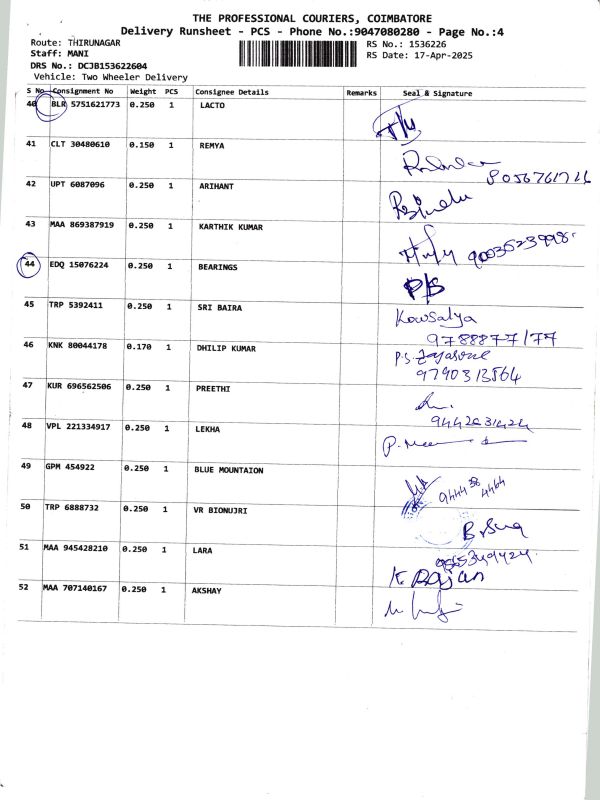 THE PROFESSIONAL COURIERS, COIMBATORE
Delivery Runsheet - PCS - Phone No.:9047080280 - Page No.:4
Route: THIRUNAGAR RS No.: 1536226
Staff: MANI RS Date: 17-Apr-2025
DRS No.: DCJB153622604
Vehicle: Two Wheeler Delivery
S No Consignment No Weight PCS Consignee Details Remarks Seal & Signature
40 BLR 5751621773 0.250 1 LACTO
41 CLT 30480610 0.150 1 REMYA
8056761716
42 UPT 6087096 0.250 1 ARIHANT
43 MAA 869387919 0.250 1 KARTHIK KUMAR
44 EDQ 15076224 0.250 1 BEARINGS
45 TRP 5392411 0.250 1 SRI BAIRA Kowsalya
9788877177
46 KNK 80044178 0.170 1 DHILIP KUMAR P.S.
9790313564
47 KUR 696562506 0.250 1 PREETHI
9442631424
48 VPL 221334917 0.250 1 LEKHA
49 GPM 454922 0.250 1 BLUE MOUNTAION
9444 38 4464
50 TRP 6888732 0.250 1 VR BIONUJRI
51 MAA 945428210 0.250 1 LARA K Rajan
52 MAA 707140167 0.250 1 AKSHAY